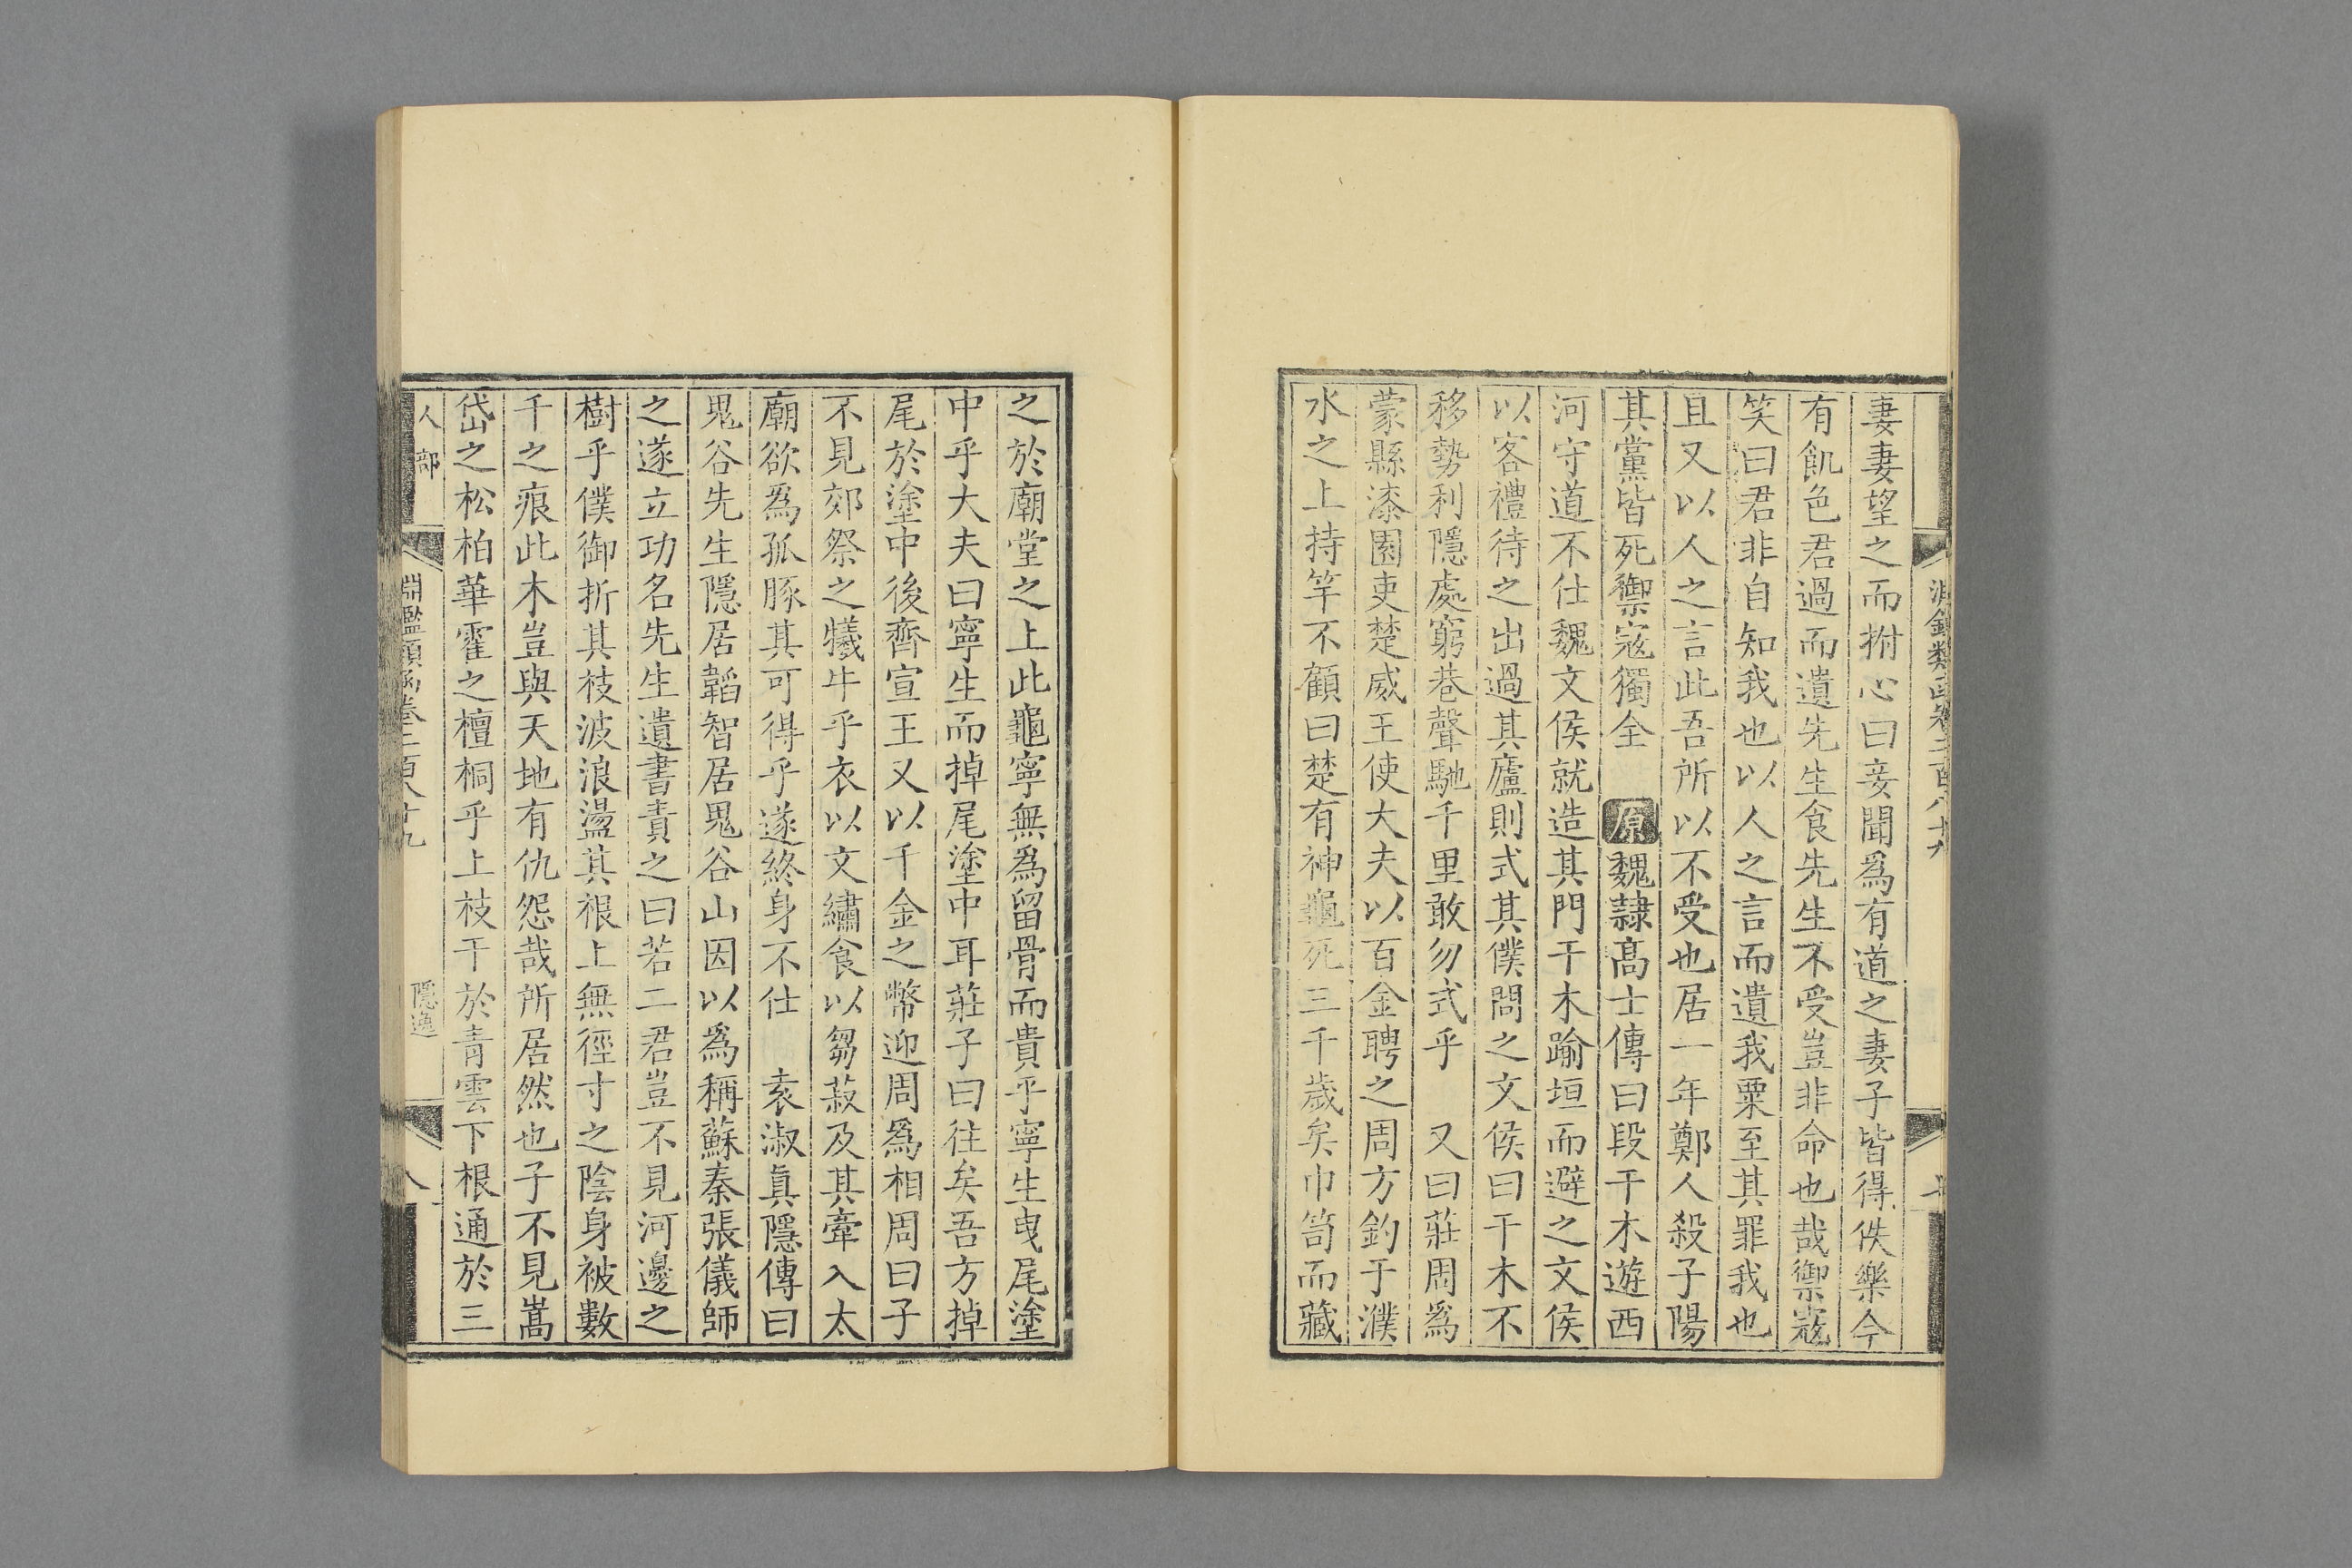 淵鑑類函卷二百八十九
妻妻望之而拊心曰妾聞爲有道之妻子皆得佚樂今
有飢色君過而遺先生食先生不受豈非命也哉禦寇
笑曰君非自知我也以人之言而遺我粟至其罪我也
且又以人之言此吾所以不受也居一年鄭人殺子陽
其黨皆死禦寇獨全 原魏隷高士傳曰段干木遊西
河守道不仕魏文侯就造其門干木踰垣而避之文侯
以客禮待之出過其廬則式其僕問之文侯曰干木不
移勢利隱處窮巷聲馳千里敢勿式乎 又曰莊周爲
蒙縣漆園吏楚威王使大夫以百金聘之周方釣于濮
水之上持竿不顧曰楚有神龜死三千歲矣巾笥而藏
之於廟堂之上此龜寧無爲留骨而貴乎寧生曳尾塗
中乎大夫曰寧生而掉尾塗中耳莊子曰往矣吾方掉
尾於塗中後齊宣王又以千金之幣迎周爲相周曰子
不見郊祭之犧牛乎衣以文繡食以芻菽及其牽入太
廟欲爲孤豚其可得乎遂終身不仕 袁淑眞隱傳曰
鬼谷先生隱居韜智居鬼谷山因以爲稱蘇秦張儀師
之遂立功名先生遺書責之曰若二君豈不見河邊之
樹乎僕御折其枝波浪盪其根上無徑寸之陰身被數
千之痕此木豈與天地有仇怨哉所居然也子不見嵩
岱之松柏華霍之檀桐乎上枝干於青雲下根通於三
人部 淵鑑類函卷二百八十九 隱逸 八